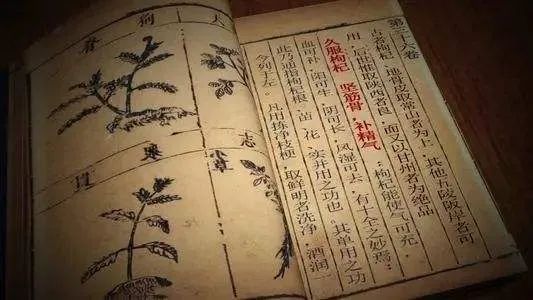 第三十六卷
古者枸杞、地骨皮取常山者为上,其他丘陵阪岸者可
用,后世惟取陕西者良,而又以甘州者为绝品
久服枸杞 坚筋骨,补精气;枸杞能使气可充,
血可补,阳可生,阴可长,风湿可去,有十全之妙焉
此乃通指枸杞根、苗、花、实并用之功也。其单用之功
今列于左。 凡用拣净枝梗,取鲜明者洗净,酒润
大
狗脊
志
小草